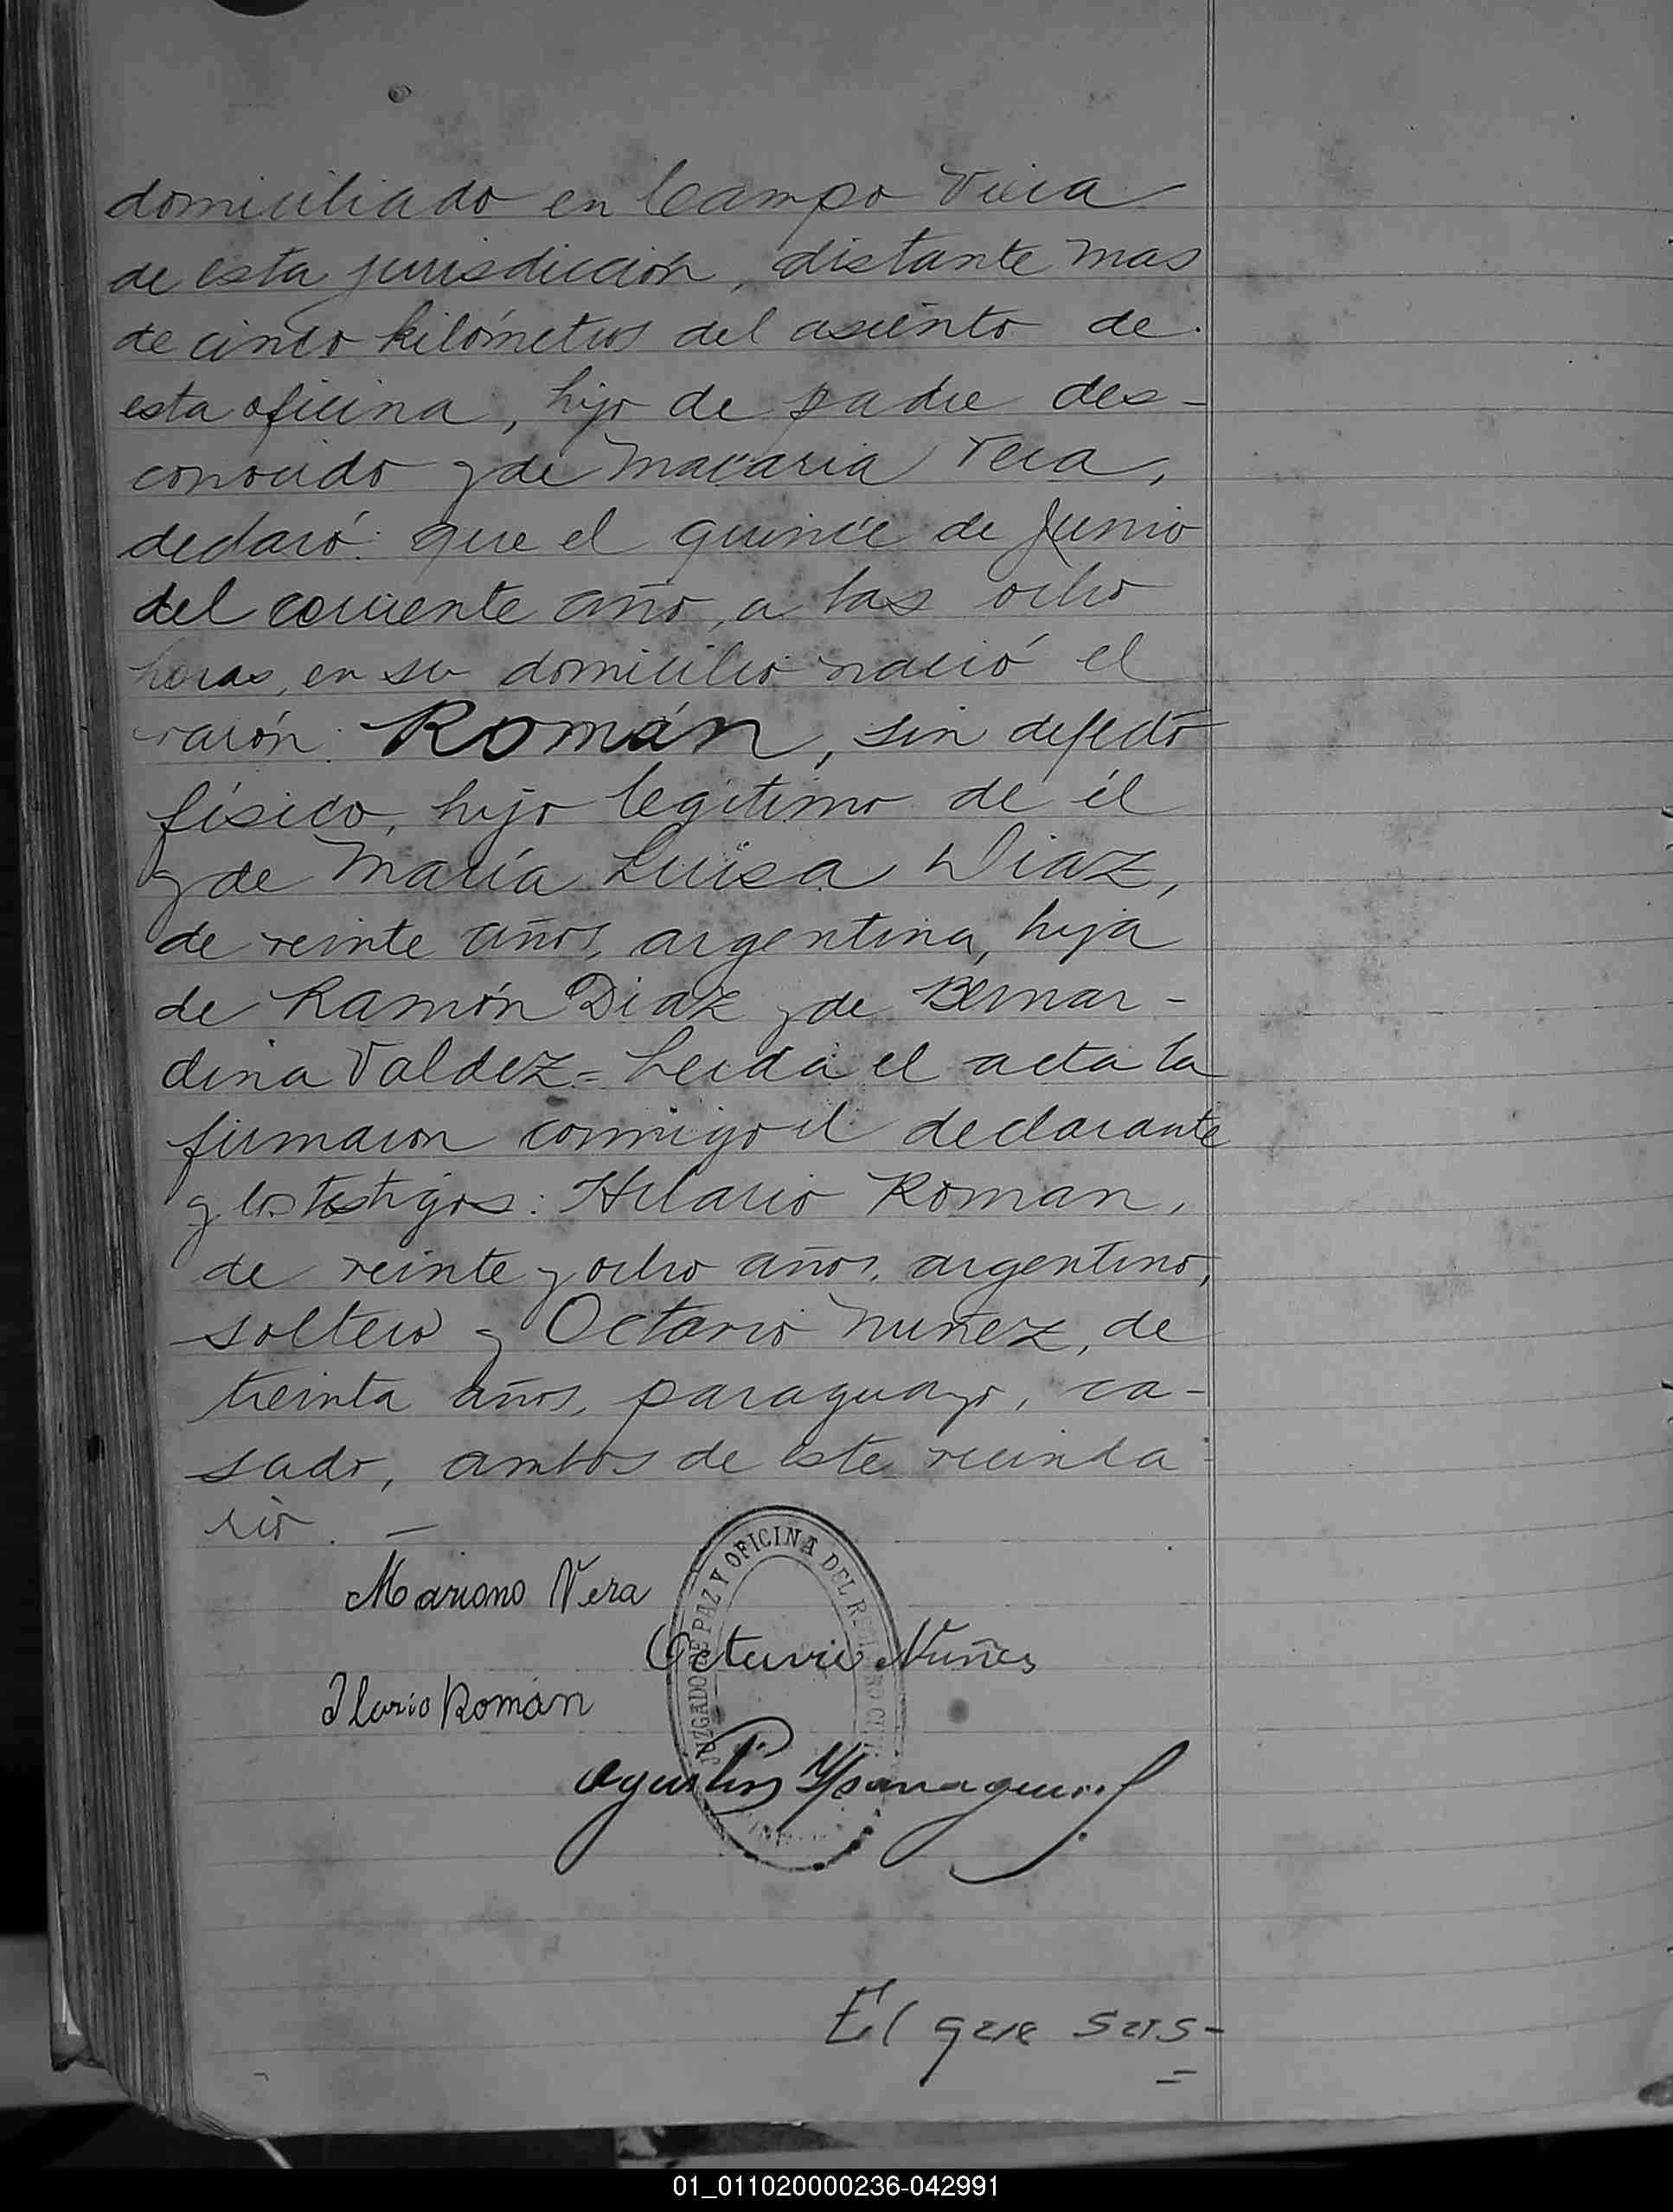 domiciliado en Campo Viera
de esta jurisdicción, distante mas
de cinco kilómetros del asiento de
esta oficina, hijo de padre des-
conocido y de Macaria Vera,
declaró: que el quince de Junio
del corriente año, a las ocho
horas, en su domicilio nació el
varón: Román, sin defecto
físico, hijo legítimo de él
y de María Luisa Diaz,
de veinte años, argentina, hija
de Ramón Diaz y de Bernar-
dina Valdez = Leida el acta la
firmaron conmigo el declarante
y los testigos: Hilario Roman,
de veinte y ocho años, argentino,
soltero y Octavio Nuñez, de
treinta años, paraguayo, ca-
sado, ambos de este vecinda-
rio. —
Mariano Vera
JUZGADO DE PAZ Y OFICINA DEL REGISTRO CIVIL
Octavio Nuñez
Ilario Román
Agustin
El que sus-
01_011020000236-042991